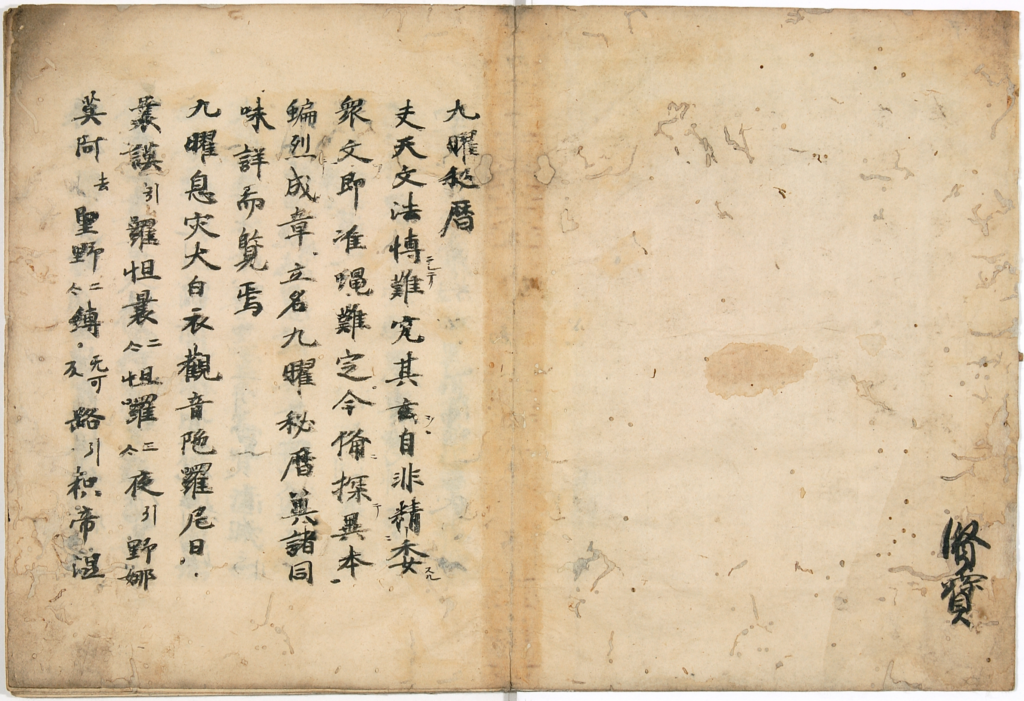 賢寶
九曜秘暦
夫天文法博難究其玄自非精委
衆文即准繩難定今偹探異本
編烈成章立名九曜秘暦冀諸同
味詳而覧焉
九曜息灾大白衣觀音陁羅尼曰
曩謨引羅怛曩二合怛羅二合夜引野娜
莫商去聖野二合縛無可反路引枳帝湿